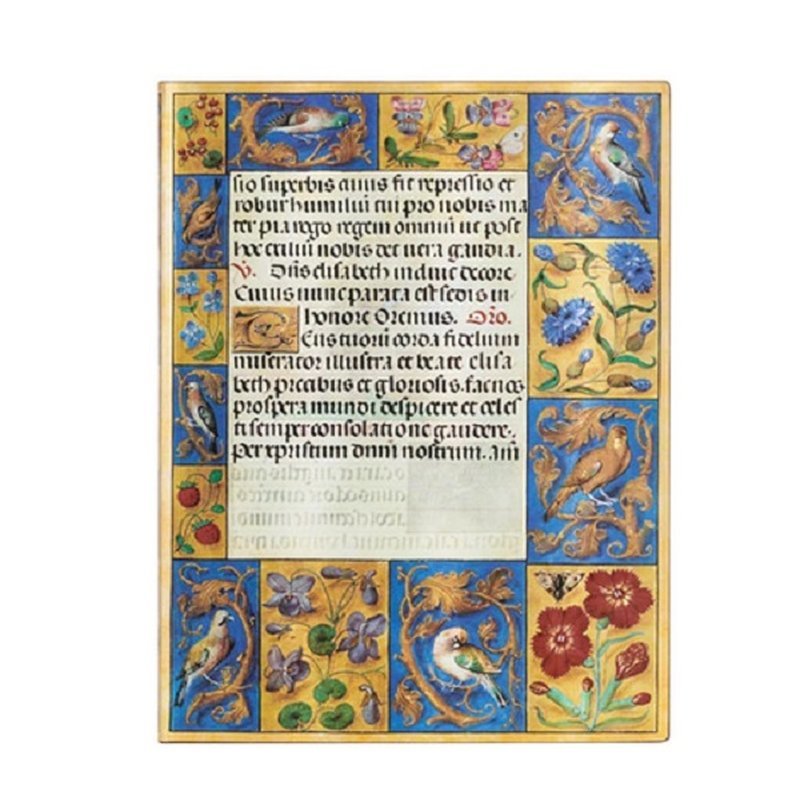 sio superbis cuius fit repressio et
robur humiliū cui pro nobis ma
ter pia rogo regem omniū ut post
hoc exiliū nobis det uera gaudia.
V. Dn̄s elisabeth induit decore
Cuius nunc parata est sedis in
honore Oremus. Or̄o.
Eus tuorū corda fidelium
miserator illustra et beate elisa
beth precabus et gloriosis. fac nos
prospera mundi despicere et celes
ti semper consolatione gaudere.
Per xpristum dnm̄ nostrum. am̄